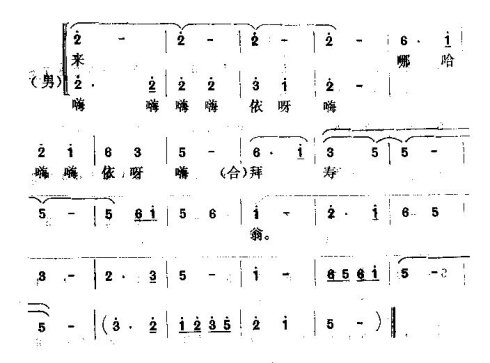 2̇ - | 2̇ - | 2̇ - | 2̇ - | 6 · 1̇
来 哪 哈
(男) 2̇ · 2̇ | 2̇ 2̇ | 3̇ 1̇ | 2̇ -
嗨 嗨 嗨 嗨 依 呀 嗨
2̇ 1̇ | 6 3 | 5 - | 6 · 1̇ | 3 5 | 5 -
嗨 嗨 依 呀 嗨 (合) 拜 寿
5 - | 5 6 1̇ | 5 6 | 1̇ - | 2̇ · 1̇ | 6 5
翁。
3 - | 2 · 3 | 5 - | 1̇ - | 6 5 6 1̇ | 5 -
5 - | (3̇ · 2̇ | 1̇ 2̇ 3̇ 5̇ | 2̇ 1̇ | 5 - )